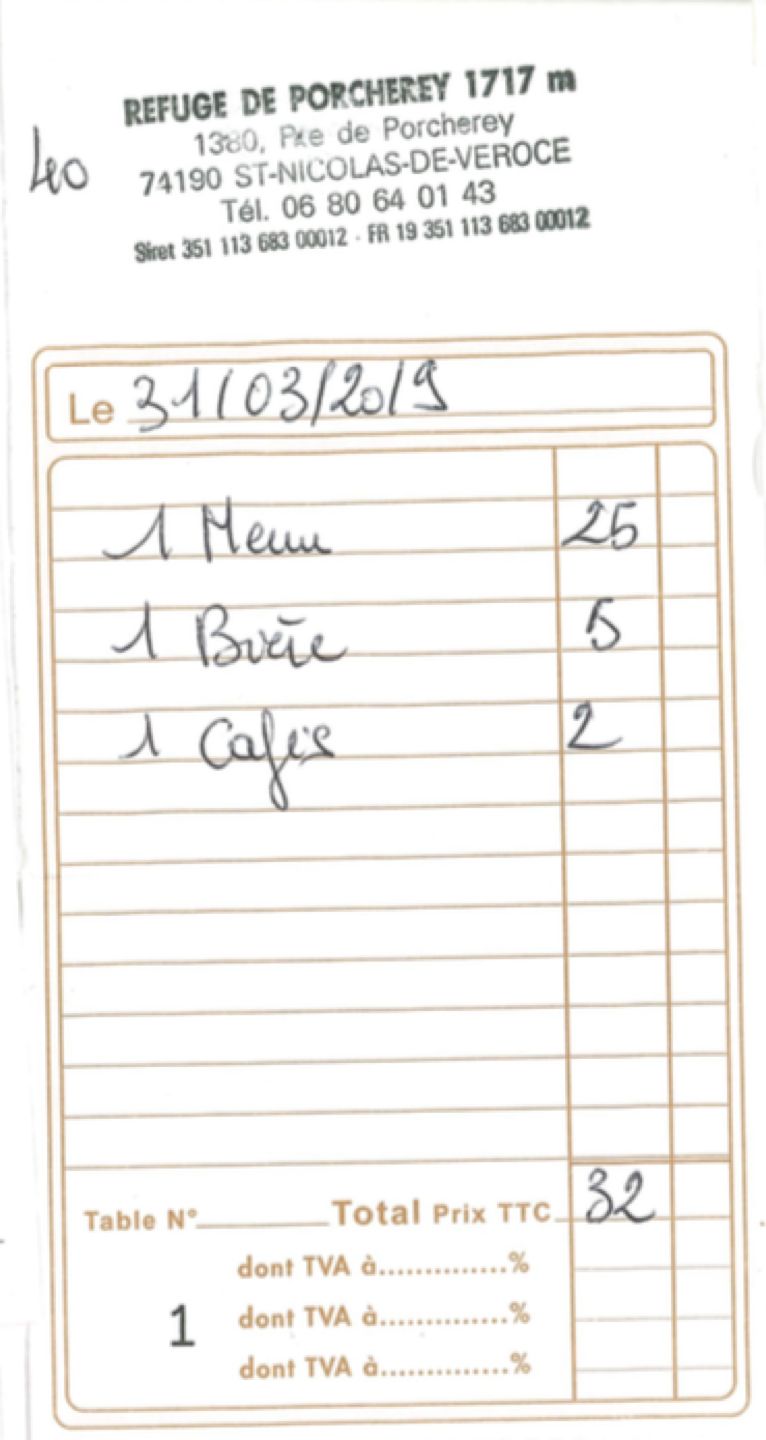 REFUGE DE PORCHEREY 1717 m
1380, Rte de Porcherey
40
74190 ST-NICOLAS-DE-VEROCE
Tél. 06 80 64 01 43
Siret 351 113 683 00012 - FR 19 351 113 683 00012
Le 31/03/2019
1 Menu 25
1 Bière 5
1 Cafés 2
Table N° Total Prix TTC 32
dont TVA à..............%
1 dont TVA à..............%
dont TVA à..............%